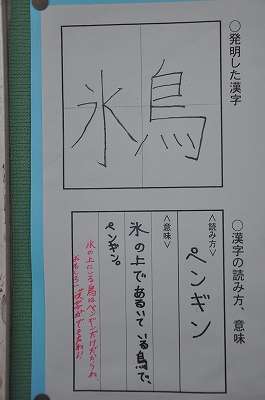 ○発明した漢字
氷鳥
○漢字の読み方、意味
<読み方>
ペンギン
<意味>
氷の上であるいている鳥で、
ペンギン。
氷の上にいる鳥はペンギンだけだからね。
おもしろい漢字ができたね!!